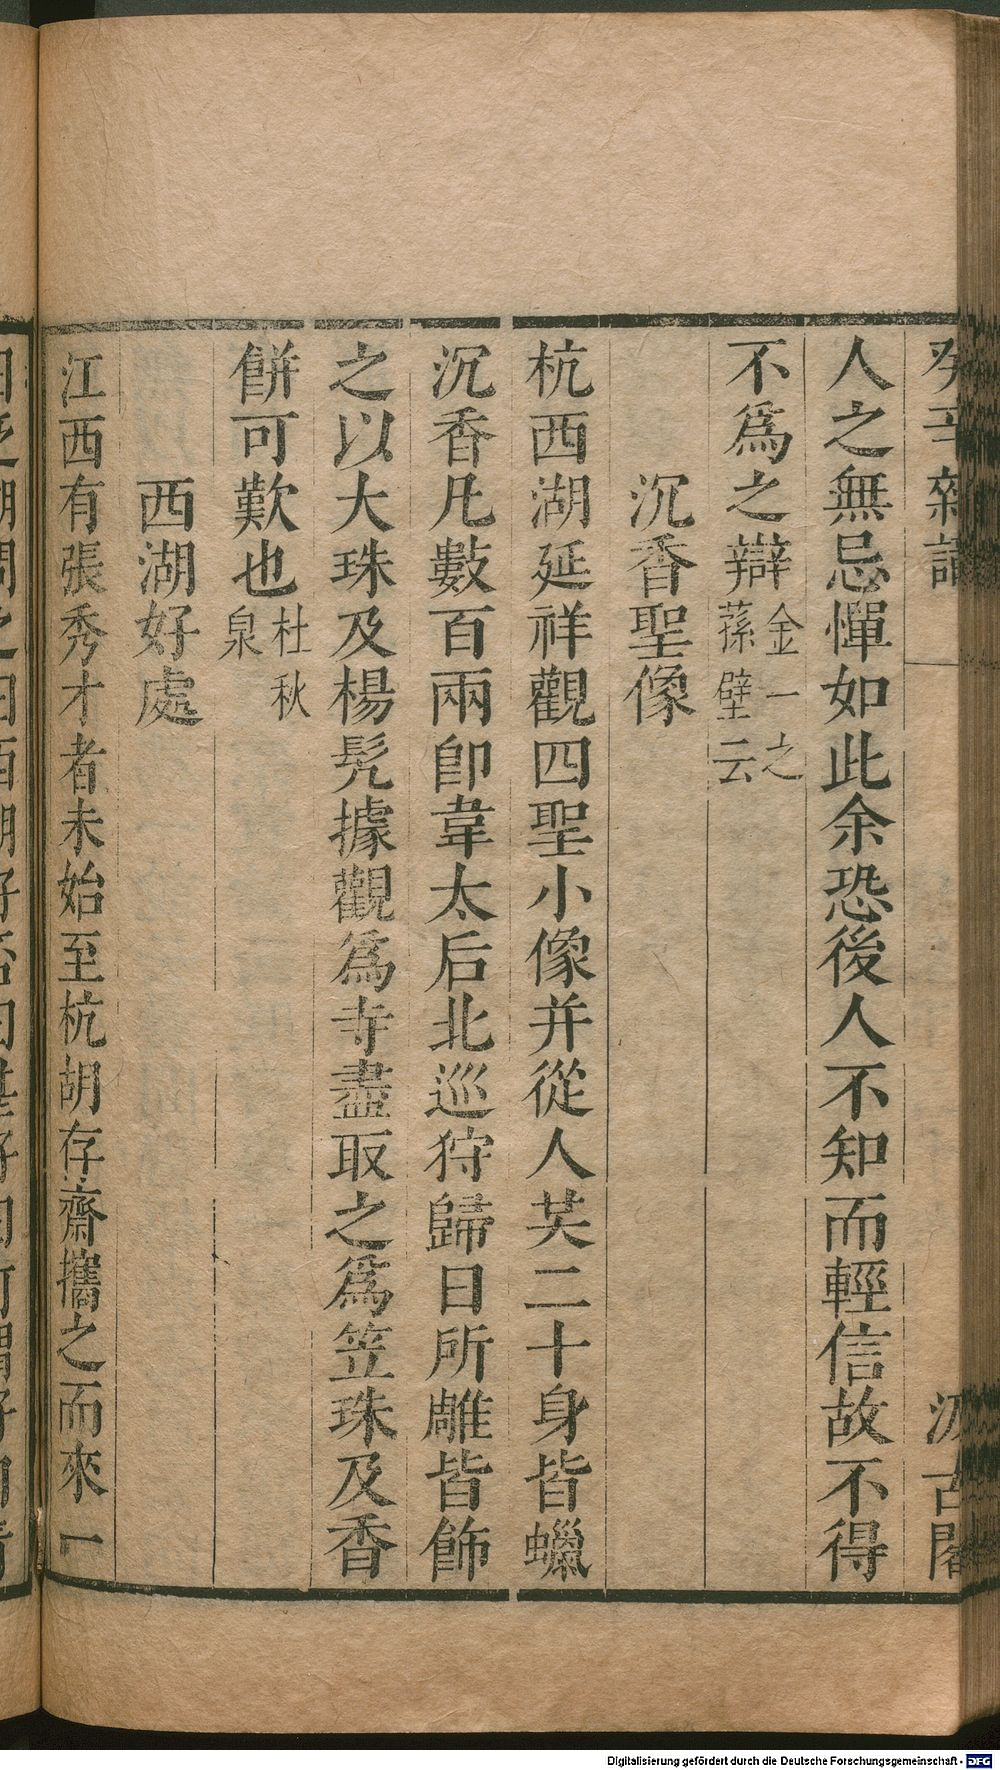 癸辛雜識　汲古閣
人之無忌憚如此余恐後人不知而輕信故不得
不爲之辯金一之蓀壁云
沉香聖像
杭西湖延祥觀四聖小像并從人共二十身皆蠟
沉香凡數百兩卽韋太后北巡狩歸日所雕皆飾
之以大珠及楊髠據觀爲寺盡取之爲笠珠及香
餅可歎也杜秋泉
西湖好處
江西有張秀才者未始至杭胡存齋攜之而來一
日泛湖問之曰西湖好否曰甚好曰何謂好曰靑
Digitalisierung gefördert durch die Deutsche Forschungsgemeinschaft - DFG